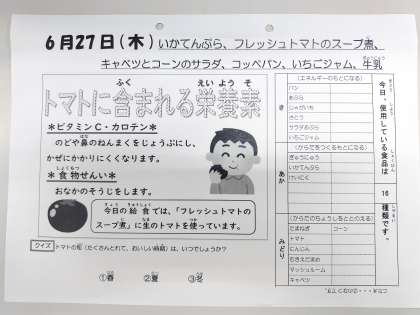 6月27日(木)いかてんぷら、フレッシュトマトのスープ煮、
キャベツとコーンのサラダ、コッペパン、いちごジャム、牛乳
トマトに含まれる栄養素
＊ビタミンC・カロテン＊
のどや鼻のねんまくをじょうぶにし、
かぜにかかりにくくなります。
＊食物せんい＊
おなかのそうじをします。
今日の給食では、「フレッシュトマトの
スープ煮」に生のトマトを使っています。
クイズ
トマトの旬（たくさんとれて、おいしい時期）は、いつでしょうか？
①春 ②夏 ③冬
今日、使用している食品は
16
種類です。
き
（エネルギーのもとになる）
パン
あぶら
じゃがいも
さとう
サラダあぶら
いちごジャム
あか
（からだをつくるもとになる）
ぎゅうにゅう
いかてんぷら
みどり
（からだのちょうしをととのえる）
たまねぎ コーン
トマト
にんじん
マッシュルーム
キャベツ